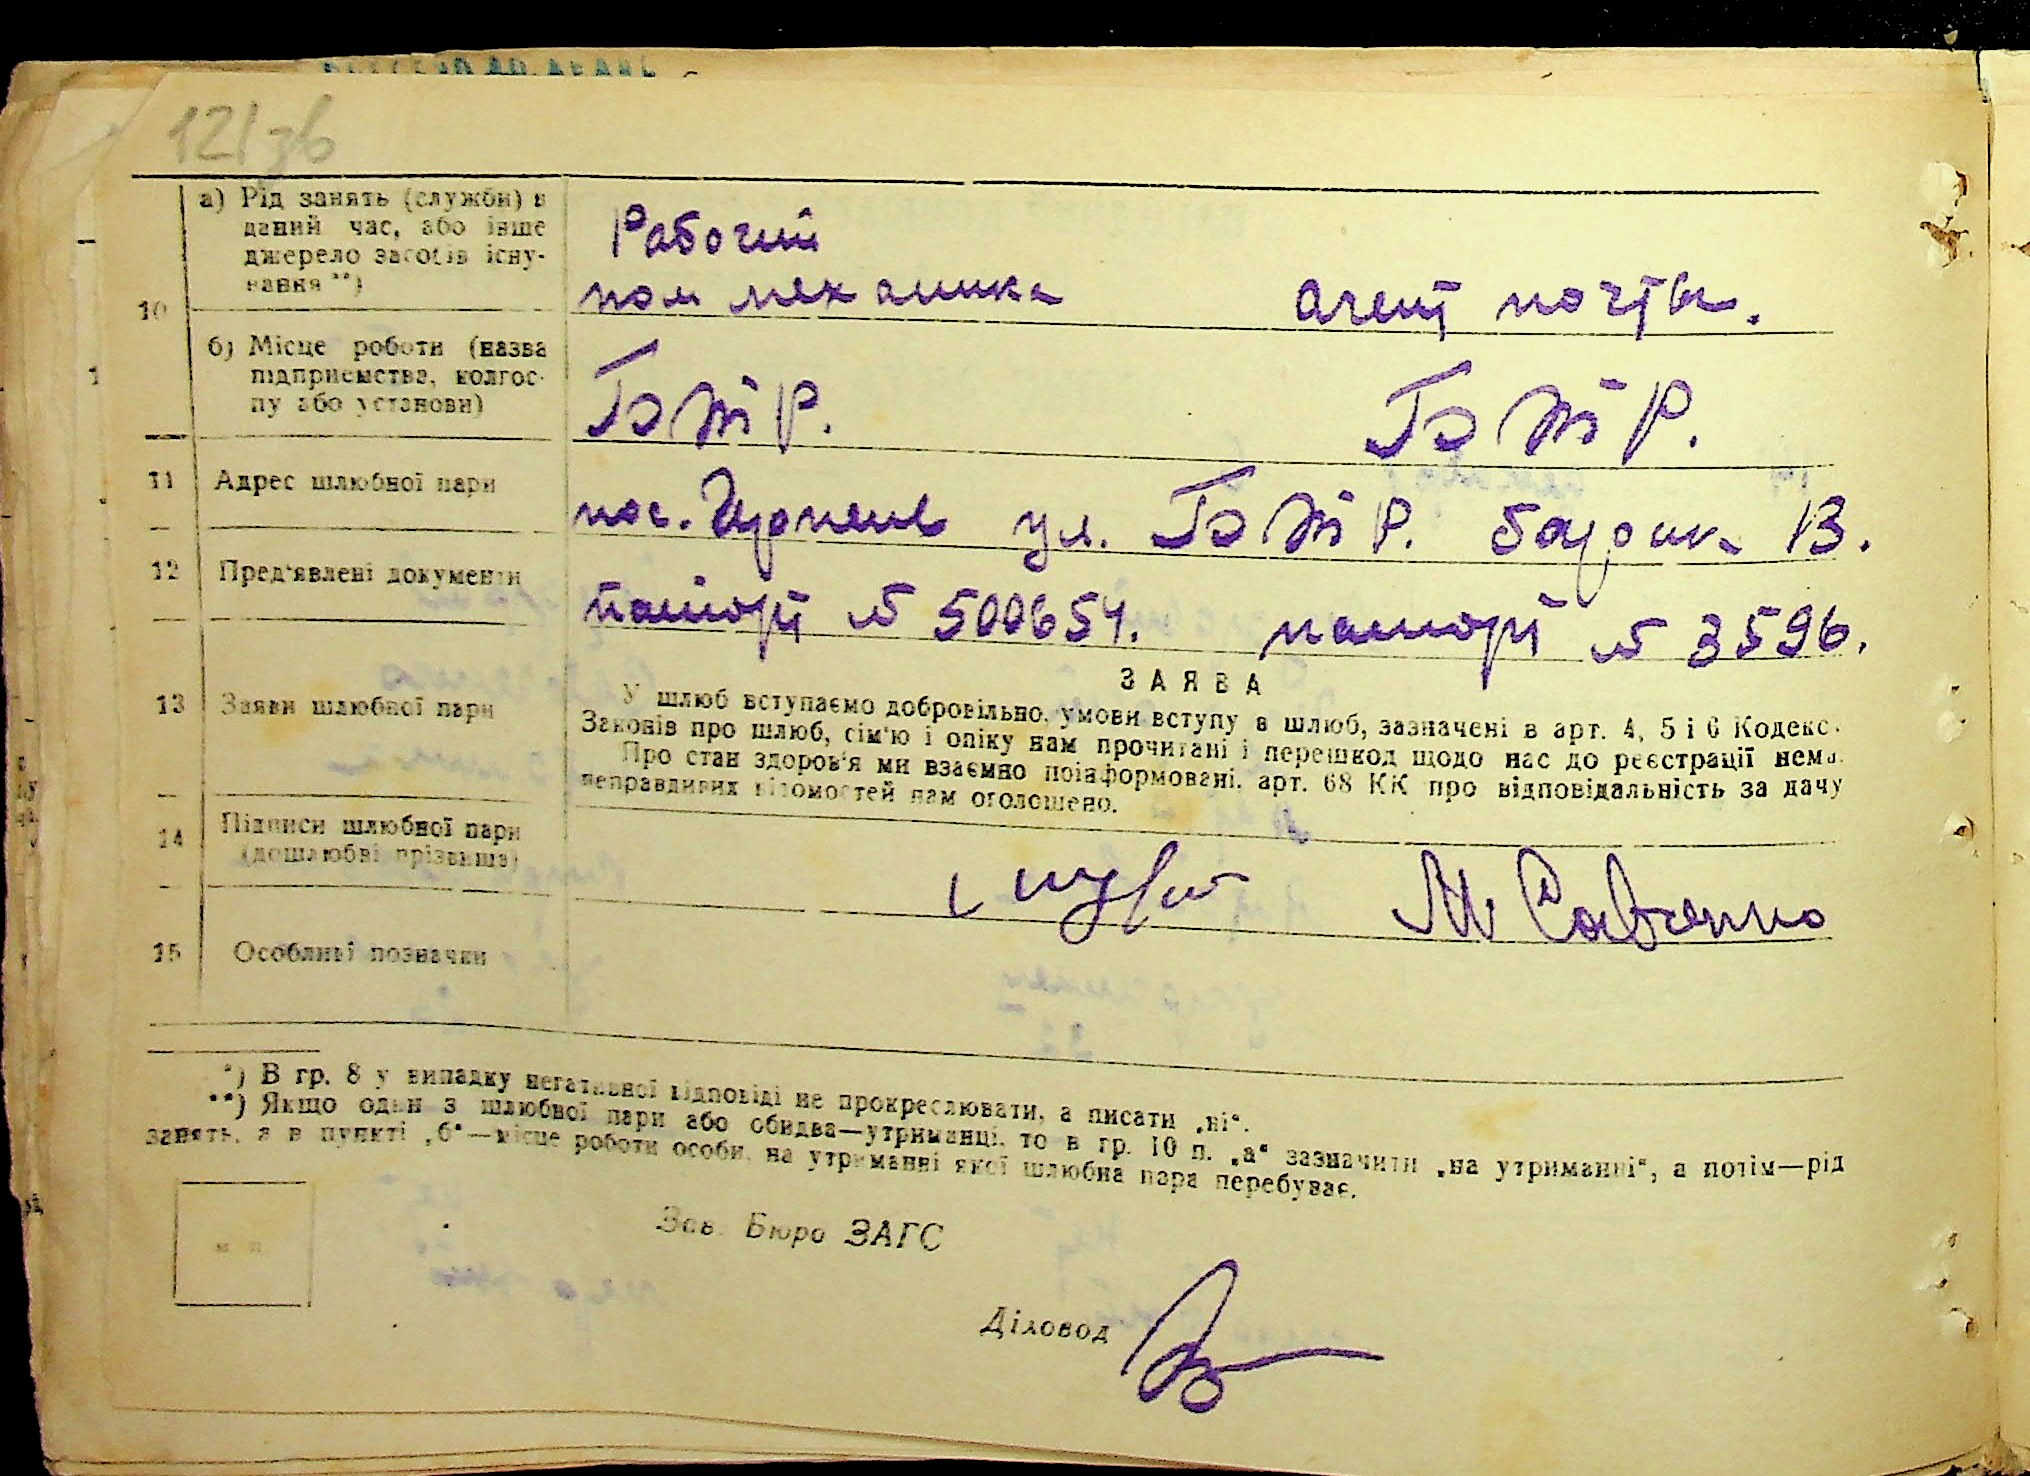 12/зв
а) Рід занять (служби) в
даний час, або інше
джерело засобів існу-
вання **)
Рабочий
пом механика
агент почты.
10
б) Місце роботи (назва
підприємства, колгос-
пу або установи)
ГЭТР.
ГЭТР.
11 Адрес шлюбної пари
пос. Ирпень ул. ГЭТР. барак 13.
12 Пред'явлені документи
паспорт № 500654. паспорт № 3596.
13 Заяви шлюбної пари
ЗАЯВА
У шлюб вступаємо добровільно, умови вступу в шлюб, зазначені в арт. 4, 5 і 6 Кодекс.
Законів про шлюб, сім'ю і опіку нам прочитані і перешкод щодо нас до реєстрації нема.
Про стан здоров'я ми взаємно поінформовані, арт. 68 КК про відповідальність за дачу
неправдивих відомостей нам оголошено.
14 Підписи шлюбної пари
(дошлюбні прізвища)
М Савченко
15 Особливі позначки
*) В гр. 8 у випадку негативної відповіді не прокреслювати, а писати „ні“.
**) Якщо один з шлюбної пари або обидва—утриманці, то в гр. 10 п. „а“ зазначити „на утриманні“, а потім—рід
занять, а в пункті „б“—місце роботи особи, на утриманні якої шлюбна пара перебуває.
М П
Зав. Бюро ЗАГС
Діловод